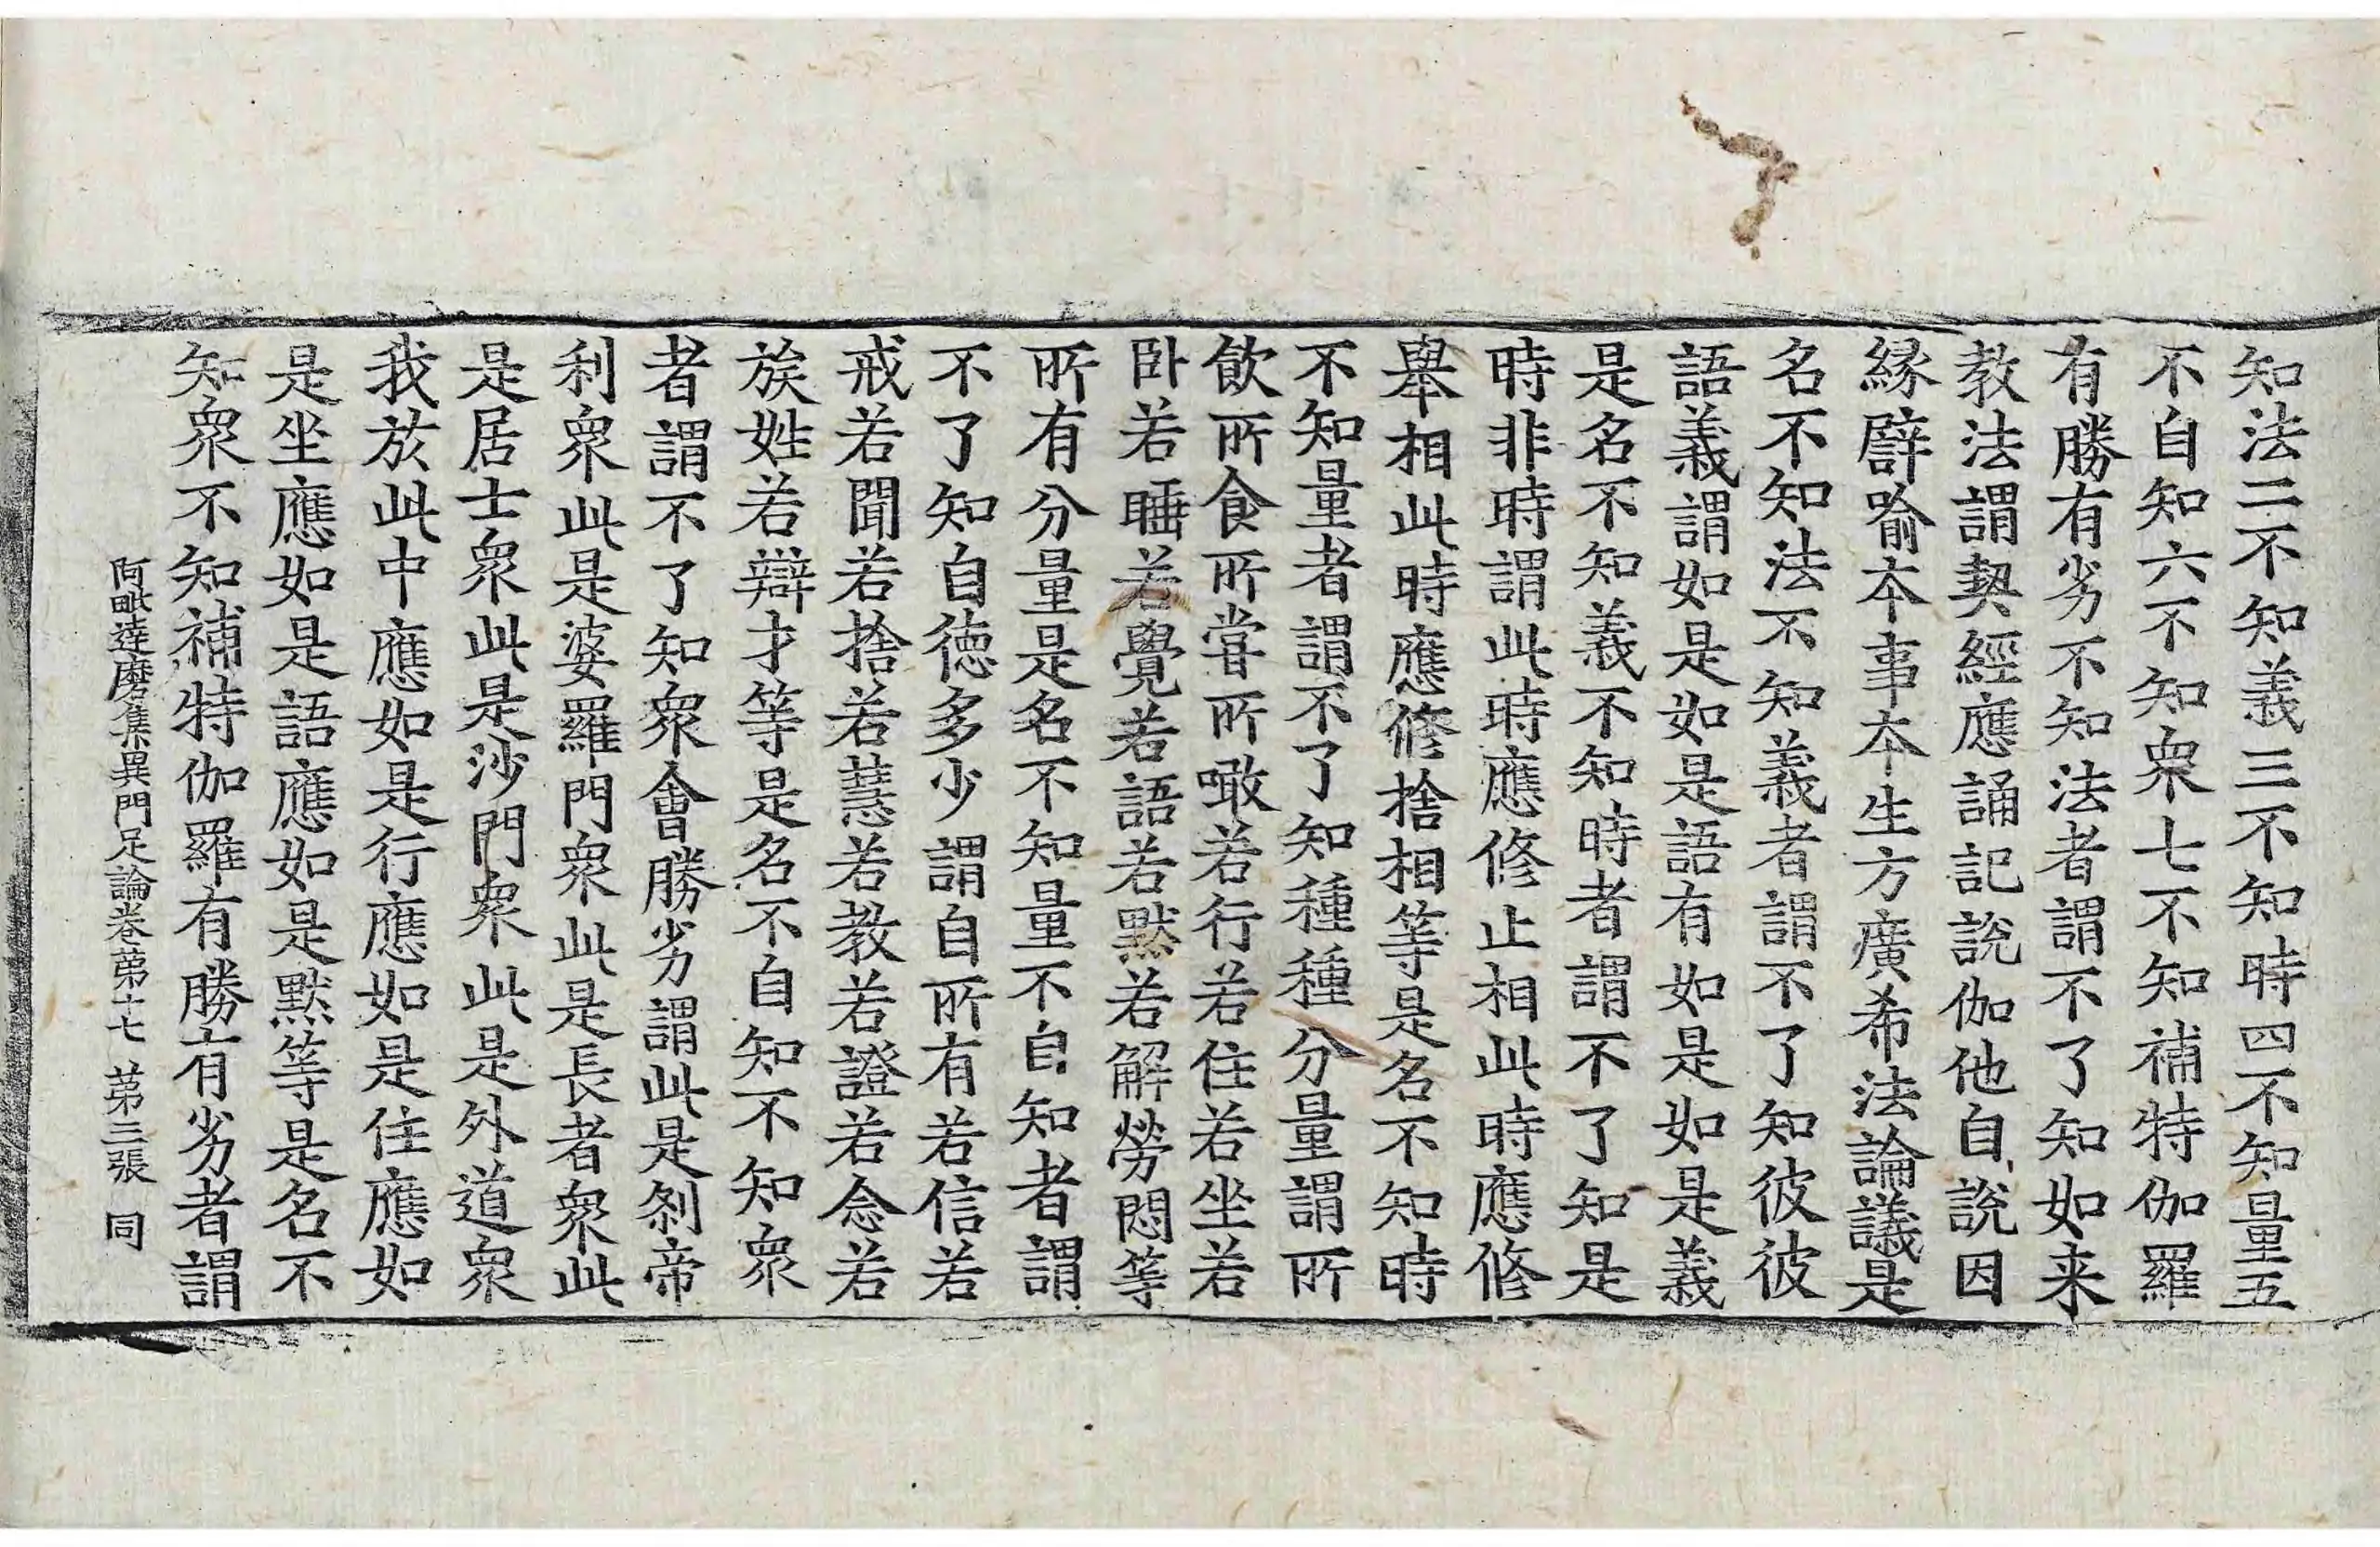 知法二不知義三不知時四不知量五
不自知六不知衆七不知補特伽羅
有勝有劣不知法者謂不了知如来
教法謂契經應誦記説伽他自説因
縁譬喻本事本生方廣希法論議是
名不知法不知義者謂不了知彼彼
語義謂如是如是語有如是如是義
是名不知義不知時者謂不了知是
時非時謂此時應修止相此時應修
舉相此時應修捨相等是名不知時
不知量者謂不了知種種分量謂所
飲所食所甞所噉若行若住若坐若
卧若睡若覺若語若默若解勞悶等
所有分量是名不知量不自知者謂
不了知自徳多少謂自所有若信若
戒若聞若捨若慧若教若證若念若
族姓若辯才等是名不自知不知衆
者謂不了知衆會勝劣謂此是刹帝
利衆此是婆羅門衆此是長者衆此
是居士衆此是沙門衆此是外道衆
我於此中應如是行應如是住應如
是坐應如是語應如是默等是名不
知衆不知補特伽羅有勝有劣者謂
阿毗達磨集異門足論卷苐十七 苐三張 同